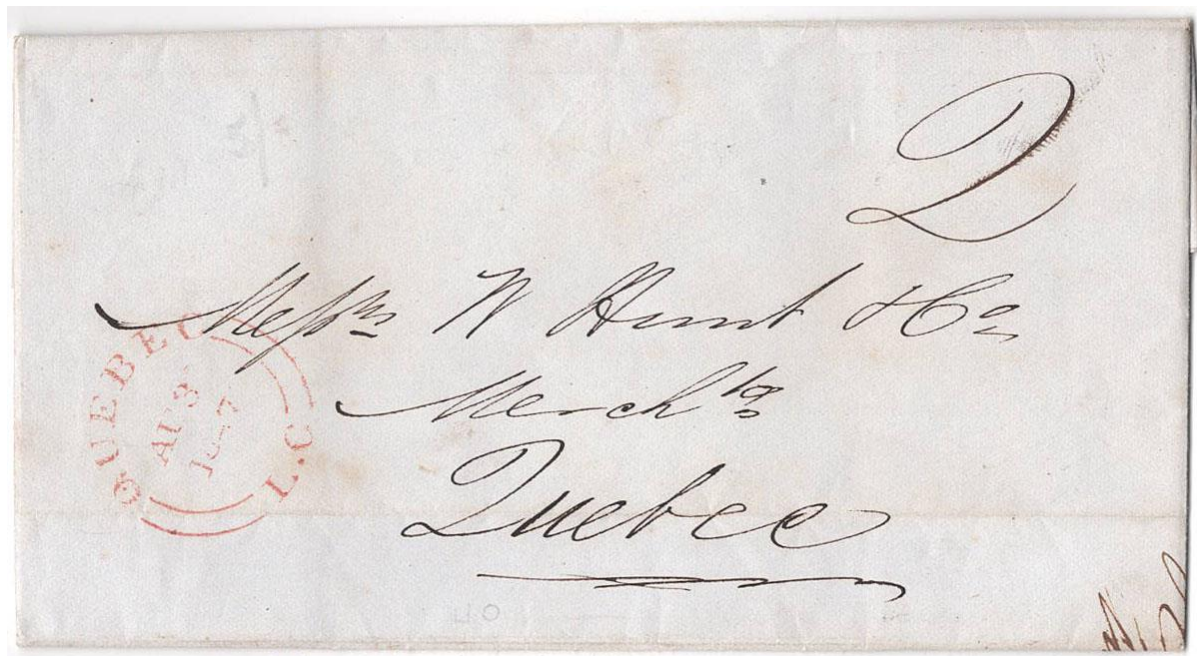 Q
Messrs W Hunt & Co
Merchts
Quebec
QUEBEC L.C
AU 3
1847